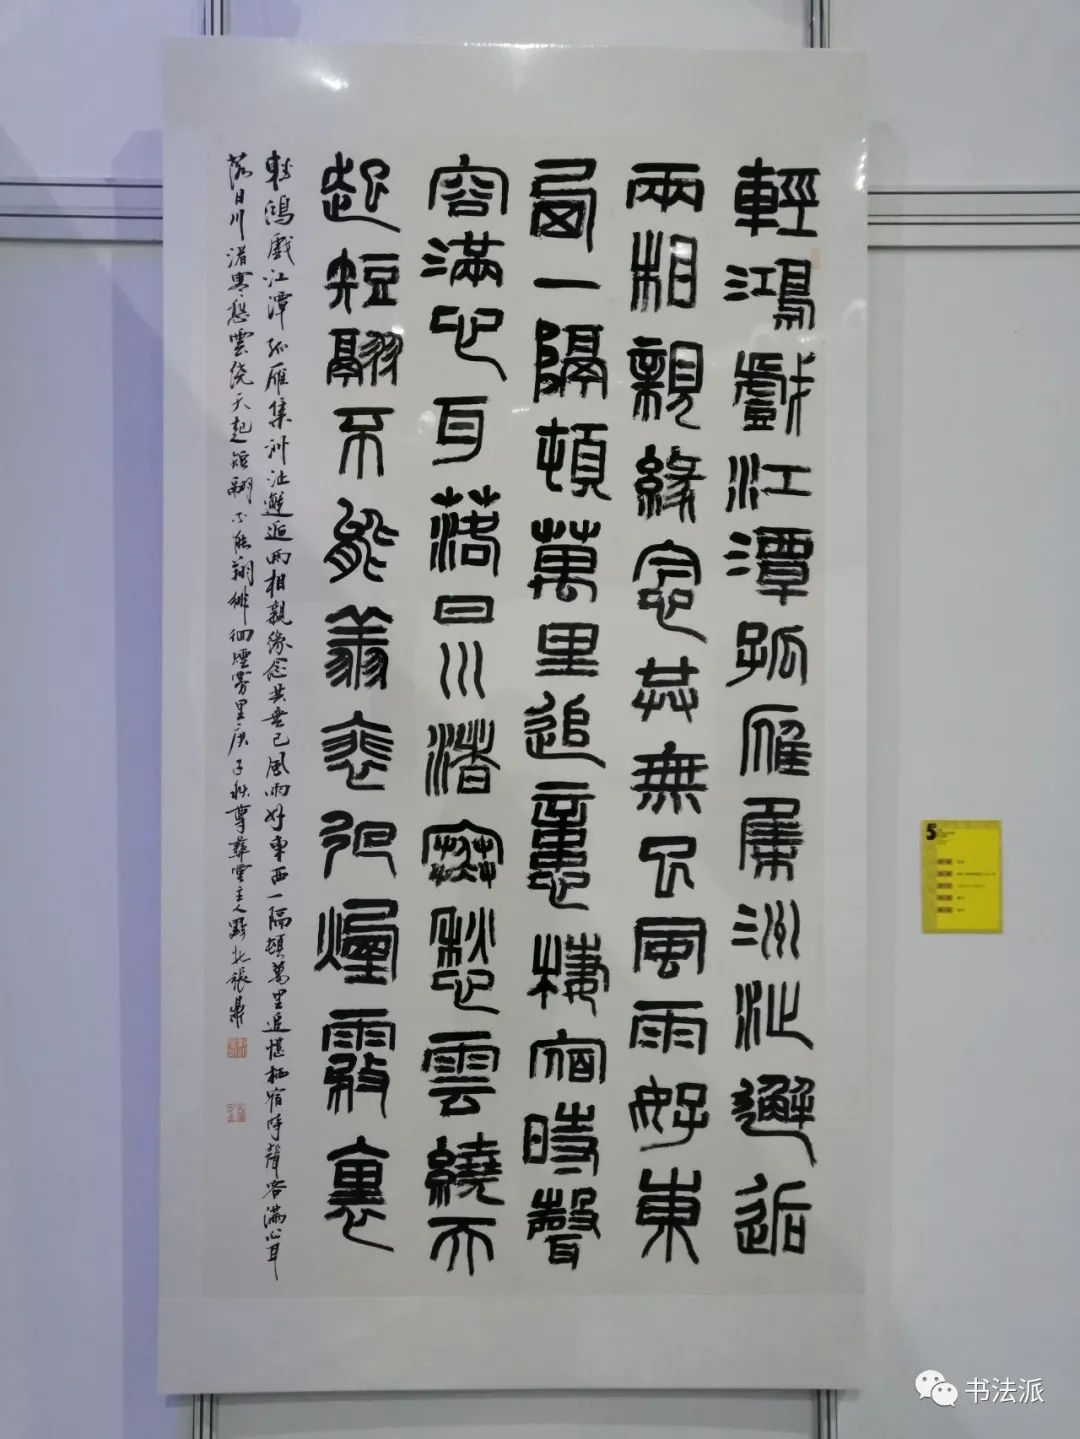 輕鴻戲江潭孤雁集洲沚邂逅
兩相親緣念共無已風雨好東
西一隔頓萬里追憶棲宿時聲
容滿心耳落日川渚寒愁雲繞天
起短翮不能翔裵徊煙霧裏
輕鴻戲江潭孤雁集洲沚邂逅兩相親緣念共無已風雨好東西一隔頓萬里追憶栖宿時聲容滿心耳
落日川渚寒愁雲繞天起短翮不能翔徘徊煙雰里庚子秋尊彝堂主人黟北張鼎
5
书法派